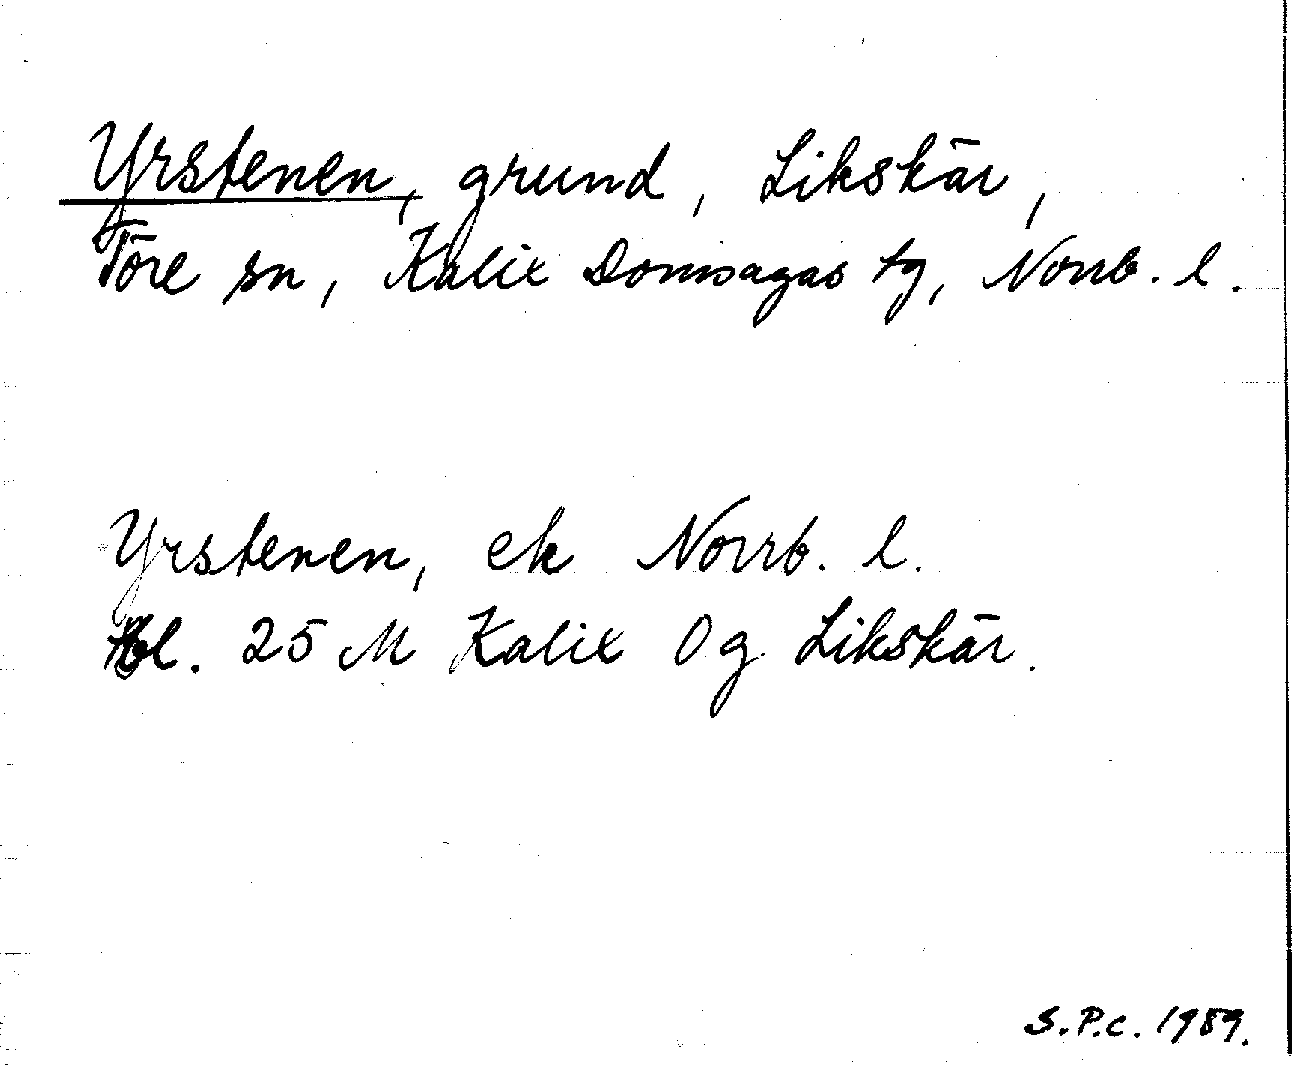 Yrstenen, grund, Likskär,
Töre sn, Kalix Domsagas tg, Norrb. l.
Yrstenen, ek Norrb. l.
bl. 25 M Kalix Og Likskär.
S.P.C. 1989.